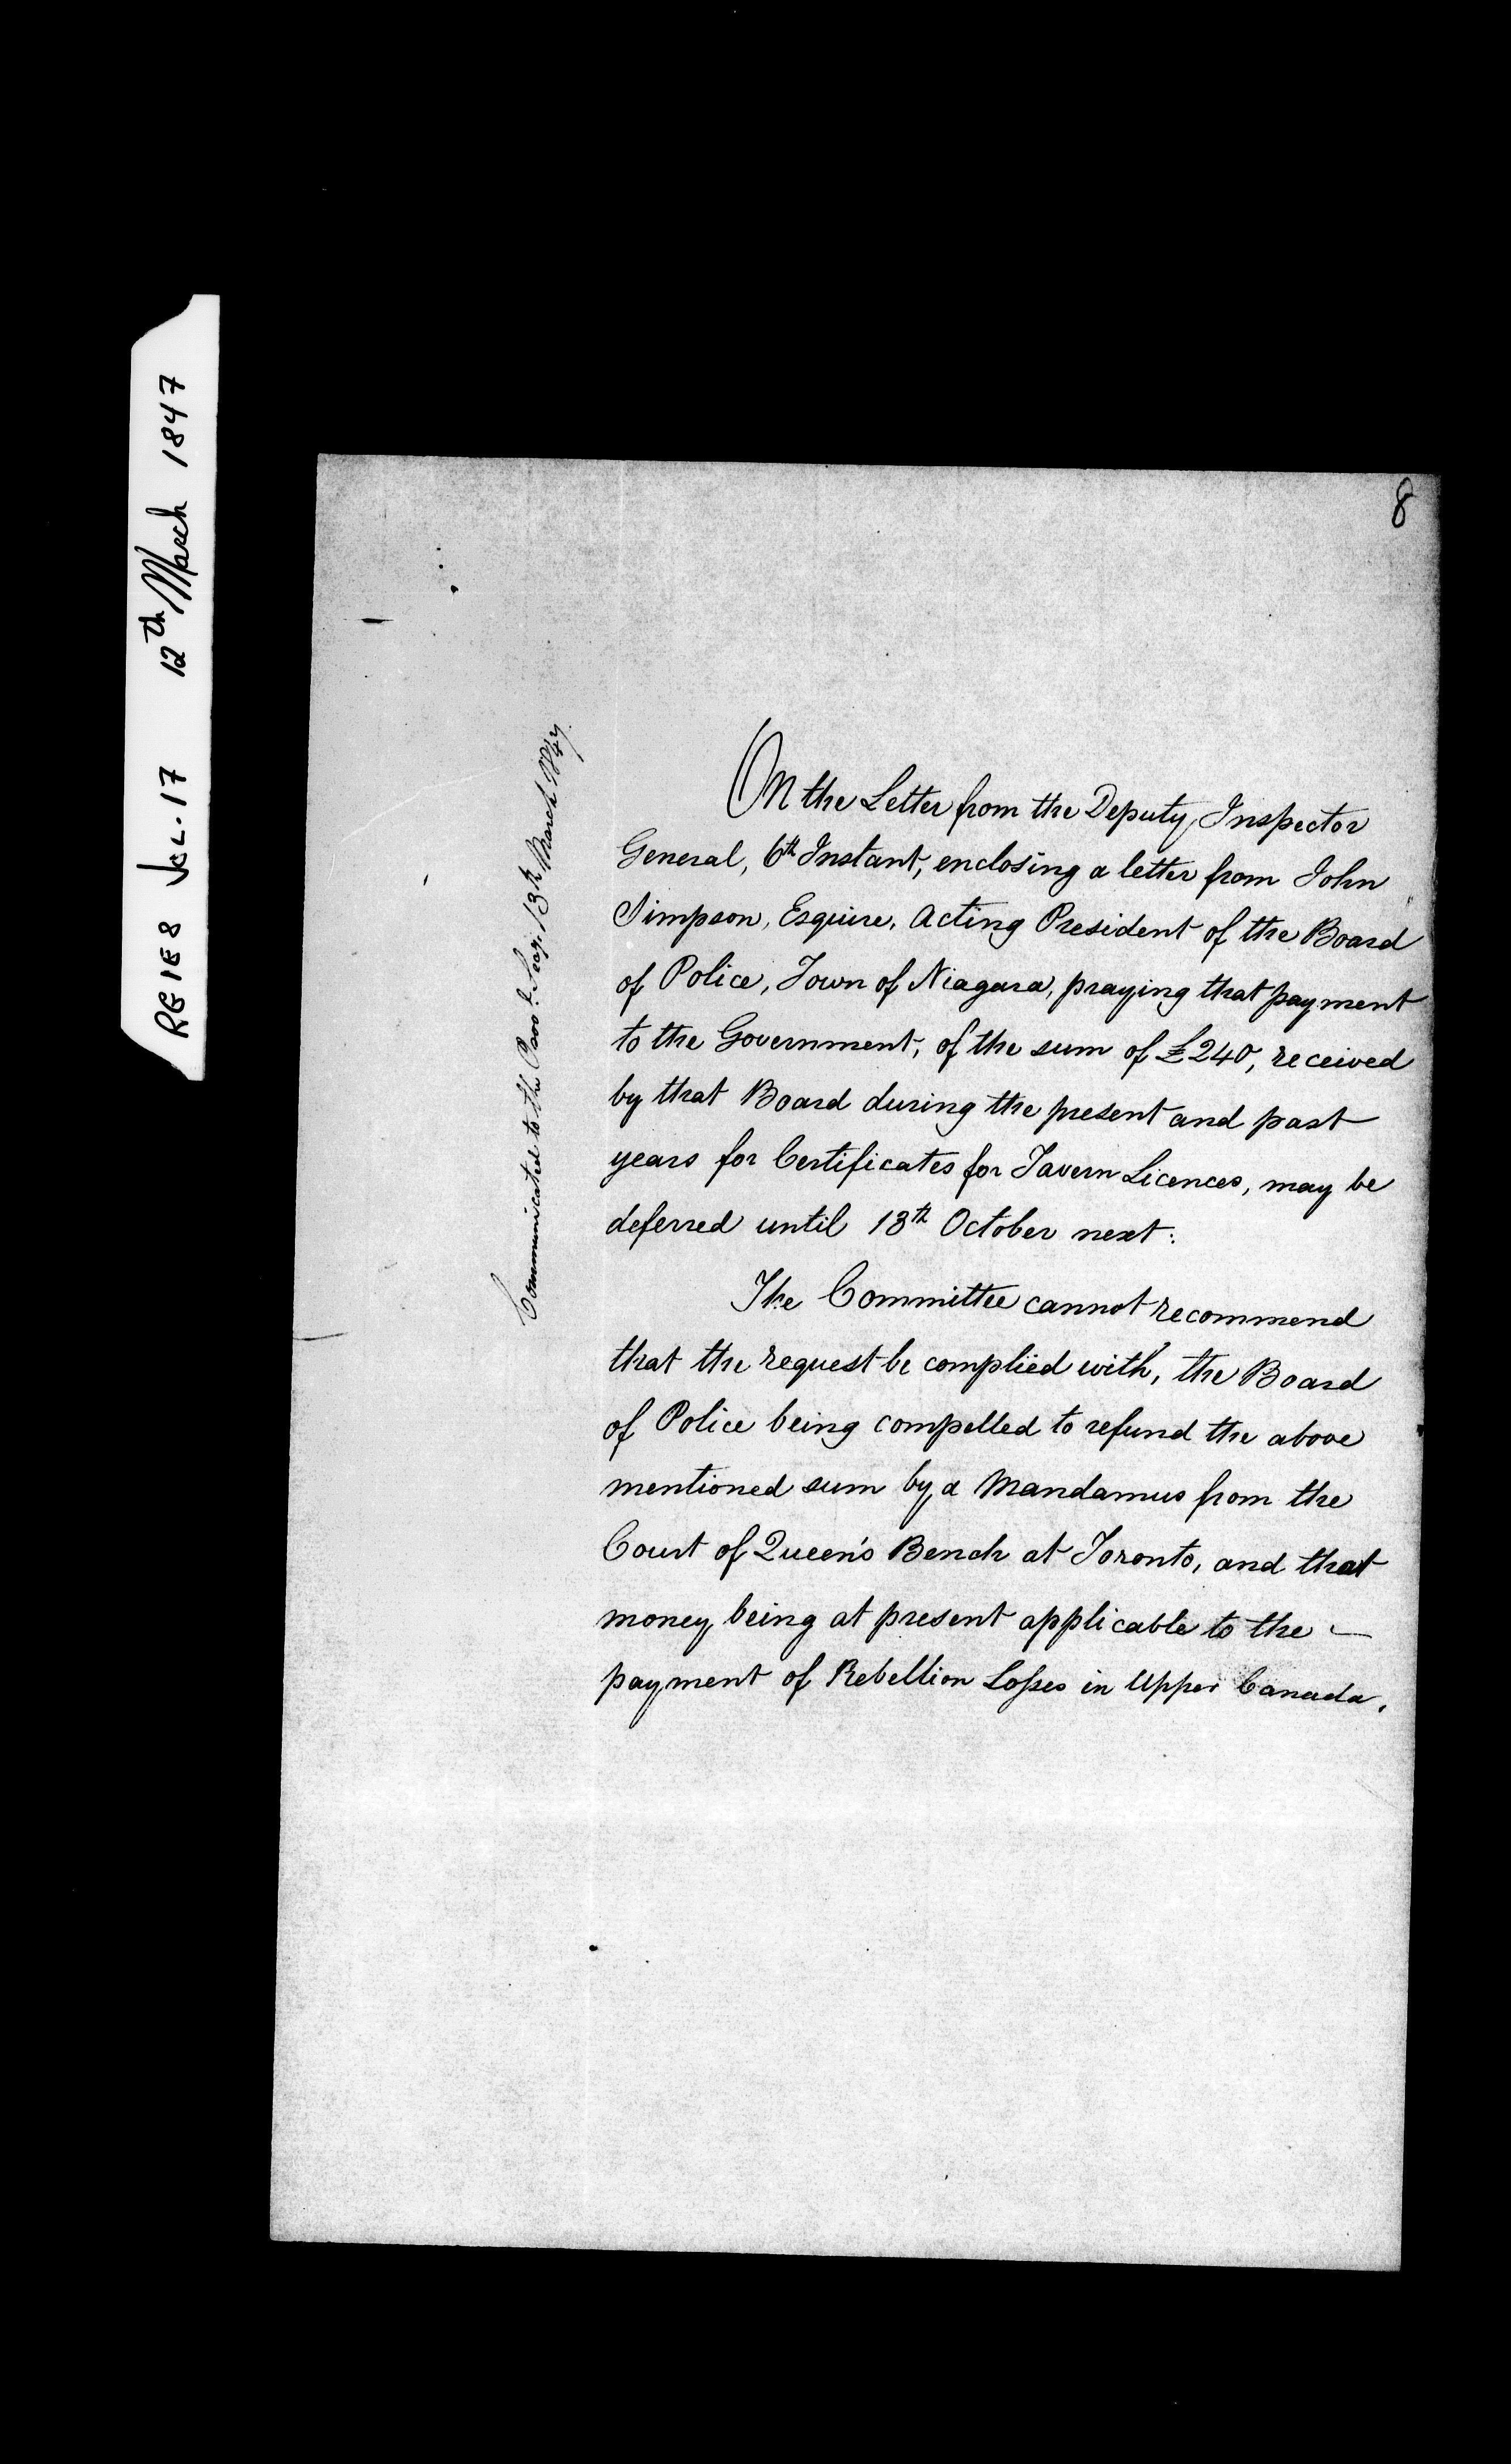 RG 1 E 8 VOL. 17 12th March 1847
8
Communicated to the Prov.l Secy. 13th March 1847.
On the Letter from the Deputy Inspector
General, 6th Instant, enclosing a letter from John
Simpson, Esquire, Acting President of the Board
of Police, Town of Niagara, praying that payment
to the Government, of the sum of £240, received
by that Board during the present and past
years for Certificates for Tavern Licences, may be
deferred until 13th October next:
The Committee cannot recommend
that the request be complied with, the Board
of Police being compelled to refund the above
mentioned sum by a Mandamus from the
Court of Queen's Bench at Toronto, and that
money being at present applicable to the —
payment of Rebellion Losses in Upper Canada.